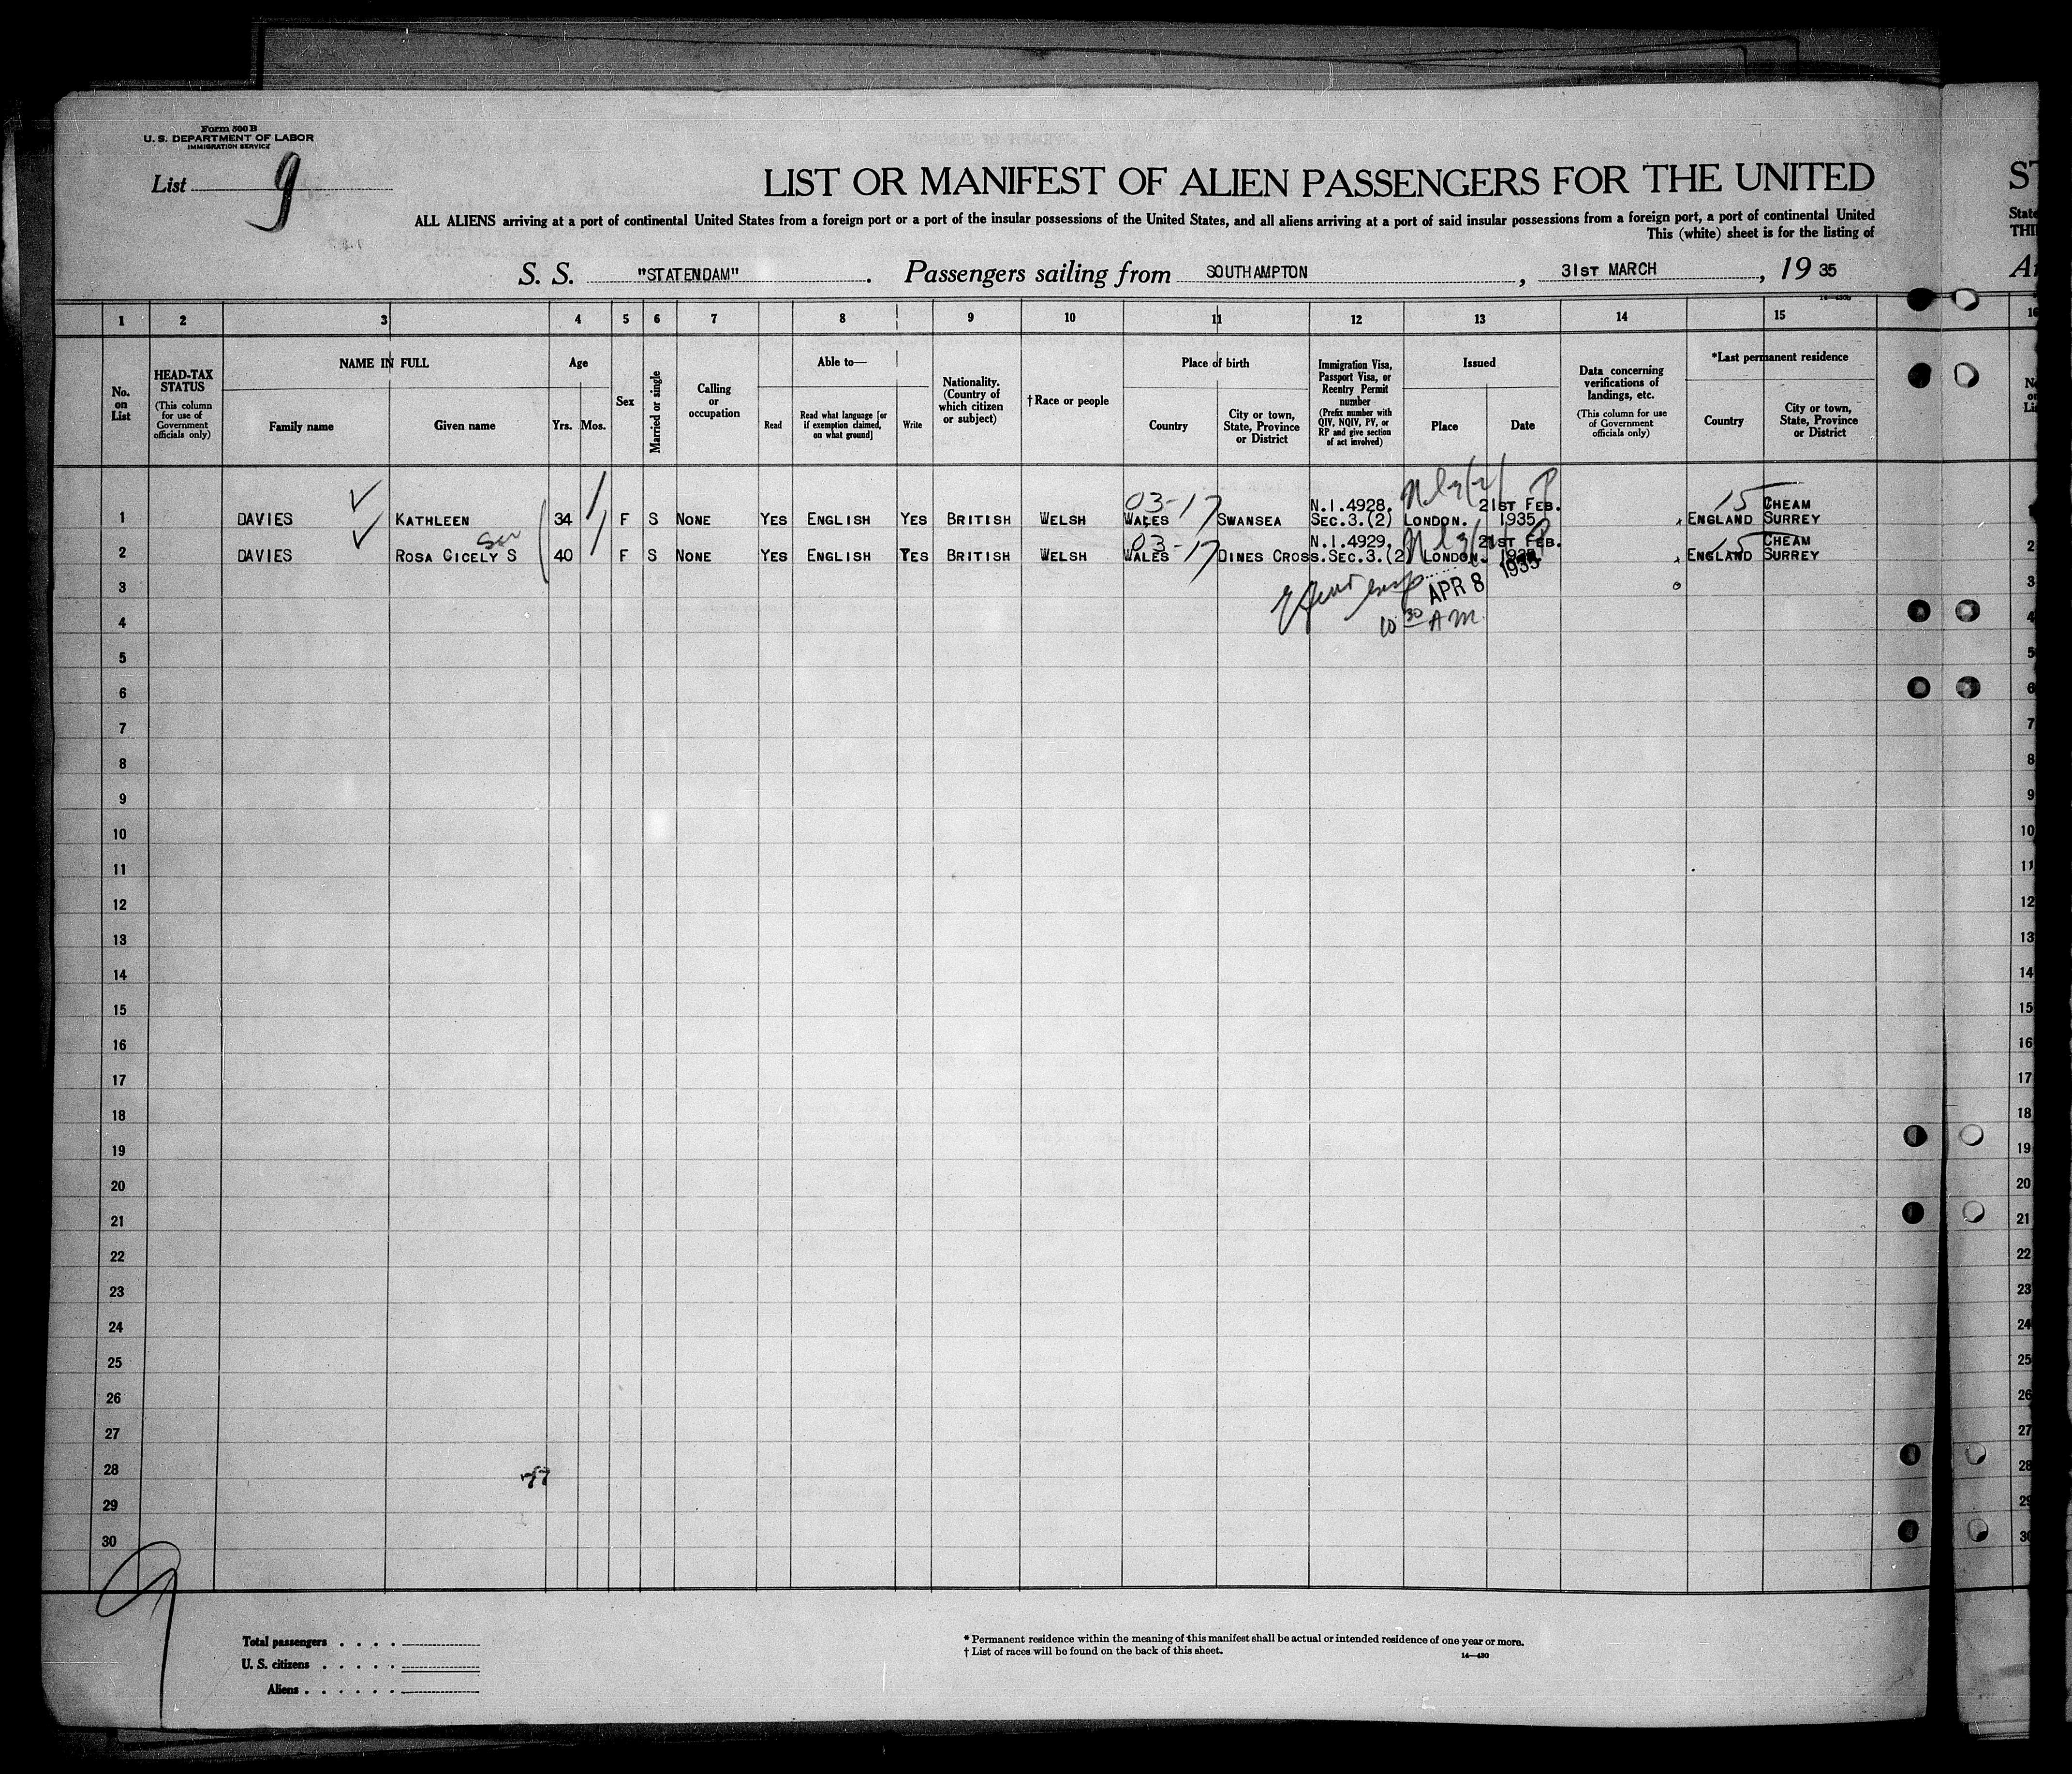 Form 500 B
U. S. DEPARTMENT OF LABOR
IMMIGRATION SERVICE
List 9
LIST OR MANIFEST OF ALIEN PASSENGERS FOR THE UNITED
ALL ALIENS arriving at a port of continental United States from a foreign port or a port of the insular possessions of the United States, and all aliens arriving at a port of said insular possessions from a foreign port, a port of continental United
This (white) sheet is for the listing of
S. S. "STATENDAM". Passengers sailing from SOUTHAMPTON, 31ST MARCH, 19 35
1 2 3 4 5 6 7 8 9 10 11 12 13 14 15
No. on List
HEAD-TAX STATUS
(This column for use of Government officials only)
NAME IN FULL
Family name
Given name
Age
Yrs. Mos.
Sex
Married or single
Calling or occupation
Able to—
Read
Read what language [or if exemption claimed, on what ground]
Write
Nationality. (Country of which citizen or subject)
†Race or people
Place of birth
Country
City or town, State, Province or District
Immigration Visa, Passport Visa, or Reentry Permit number
(Prefix number with QIV, NQIV, PV, or RP and give section of act involved)
Issued
Place
Date
Data concerning verifications of landings, etc.
(This column for use of Government officials only)
*Last permanent residence
Country
City or town, State, Province or District
03-17 N.I.4928. 21ST FEB. 15 CHEAM
1 DAVIES KATHLEEN 34 F S NONE YES ENGLISH YES BRITISH WELSH WALES SWANSEA SEC.3.(2) LONDON. 1935 ENGLAND SURREY
03-17 N.I.4929. 21ST FEB. 15 CHEAM
2 DAVIES ROSA CICELY S 40 F S NONE YES ENGLISH YES BRITISH WELSH WALES DINES CROSS. SEC.3.(2) LONDON. ENGLAND SURREY
3
APR 8 1935
4
10 30 A M
5
6
7
8
9
10
11
12
13
14
15
16
17
18
19
20
21
22
23
24
25
26
27
28
29
30
9
Total passengers
U. S. citizens
Aliens
* Permanent residence within the meaning of this manifest shall be actual or intended residence of one year or more.
† List of races will be found on the back of this sheet.
14—430